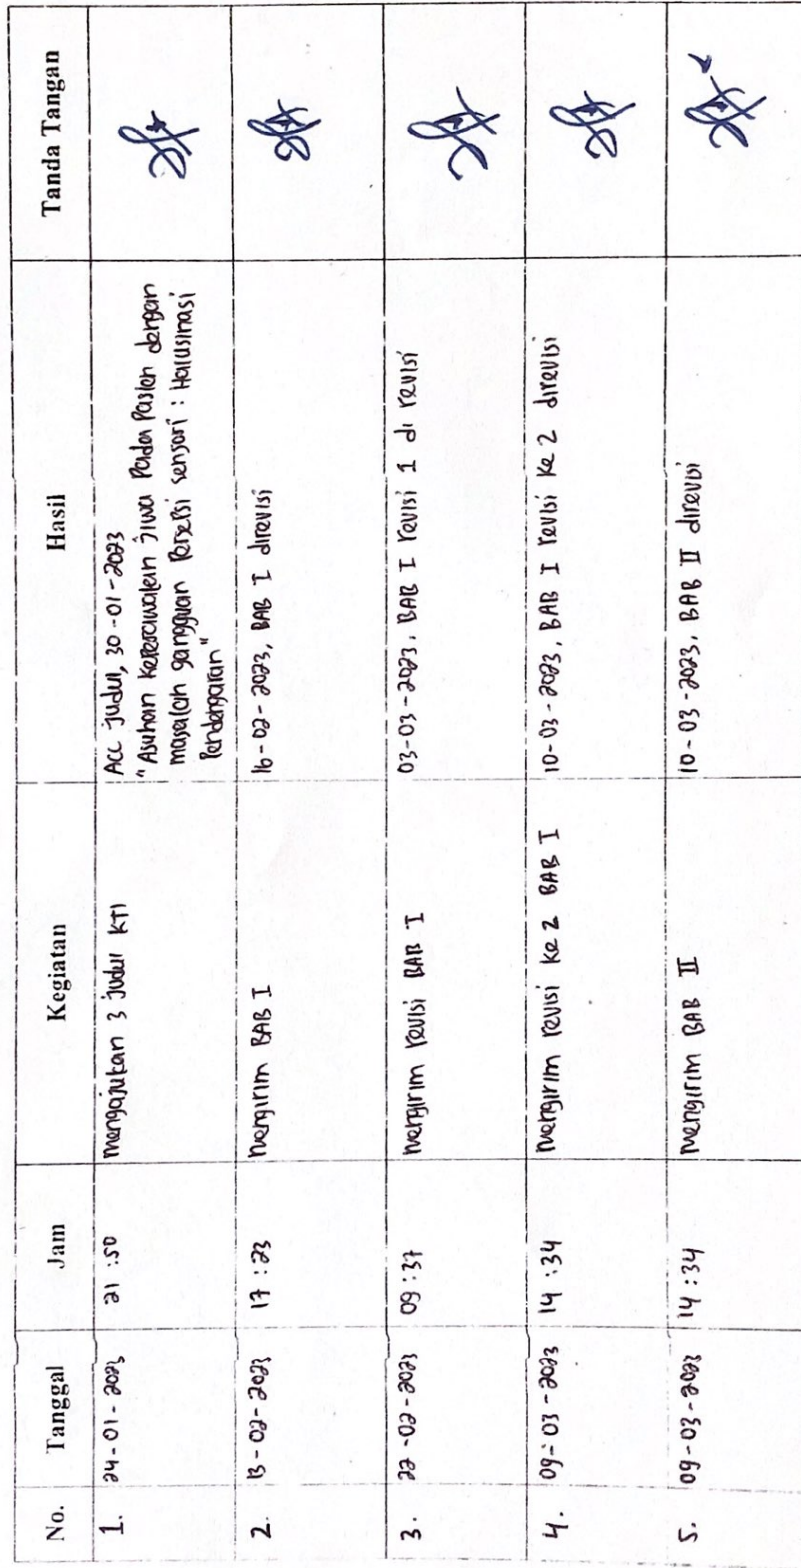 No. Tanggal Jam Kegiatan Hasil Tanda Tangan
1. 24-01-2023 21:50 Mengajukan 3 judul KTI Acc judul, 30-01-2023
"Asuhan Keperawatan Jiwa Pada Pasien dengan
masalah gangguan Persepsi sensori : Halusinasi
Pendengaran"
2. 13-02-2023 17:23 Mengirim BAB I 16-02-2023, BAB I direvisi
3. 22-02-2023 09:37 Mengirim revisi BAB I 03-03-2023, BAB I revisi 1 di revisi
4. 09-03-2023 14:34 Mengirim revisi ke 2 BAB I 10-03-2023, BAB I revisi ke 2 direvisi
5. 09-03-2023 14:34 Mengirim BAB II 10-03-2023, BAB II direvisi